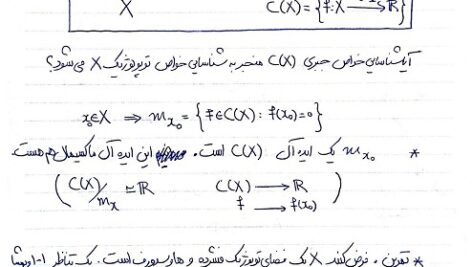 X C(X) = { f: X → ℝ }
آیا شناسایی خواص جبری C(X) منجر به شناسایی خواص توپولوژیک X می‌شود؟
x₀∈X ⇒ m_{x₀} = { f∈C(X) : f(x₀)=0 }
* m_{x₀} یک ایده آل C(X) است. این ایده آل ماکسیمال هم هست.
( C(X)/m_x ≃ ℝ C(X) → ℝ
f → f(x₀) )
* تمرین. فرض کنید X یک فضای توپولوژیک فشرده و هاوسدورف است. یک تناظر ۱-۱